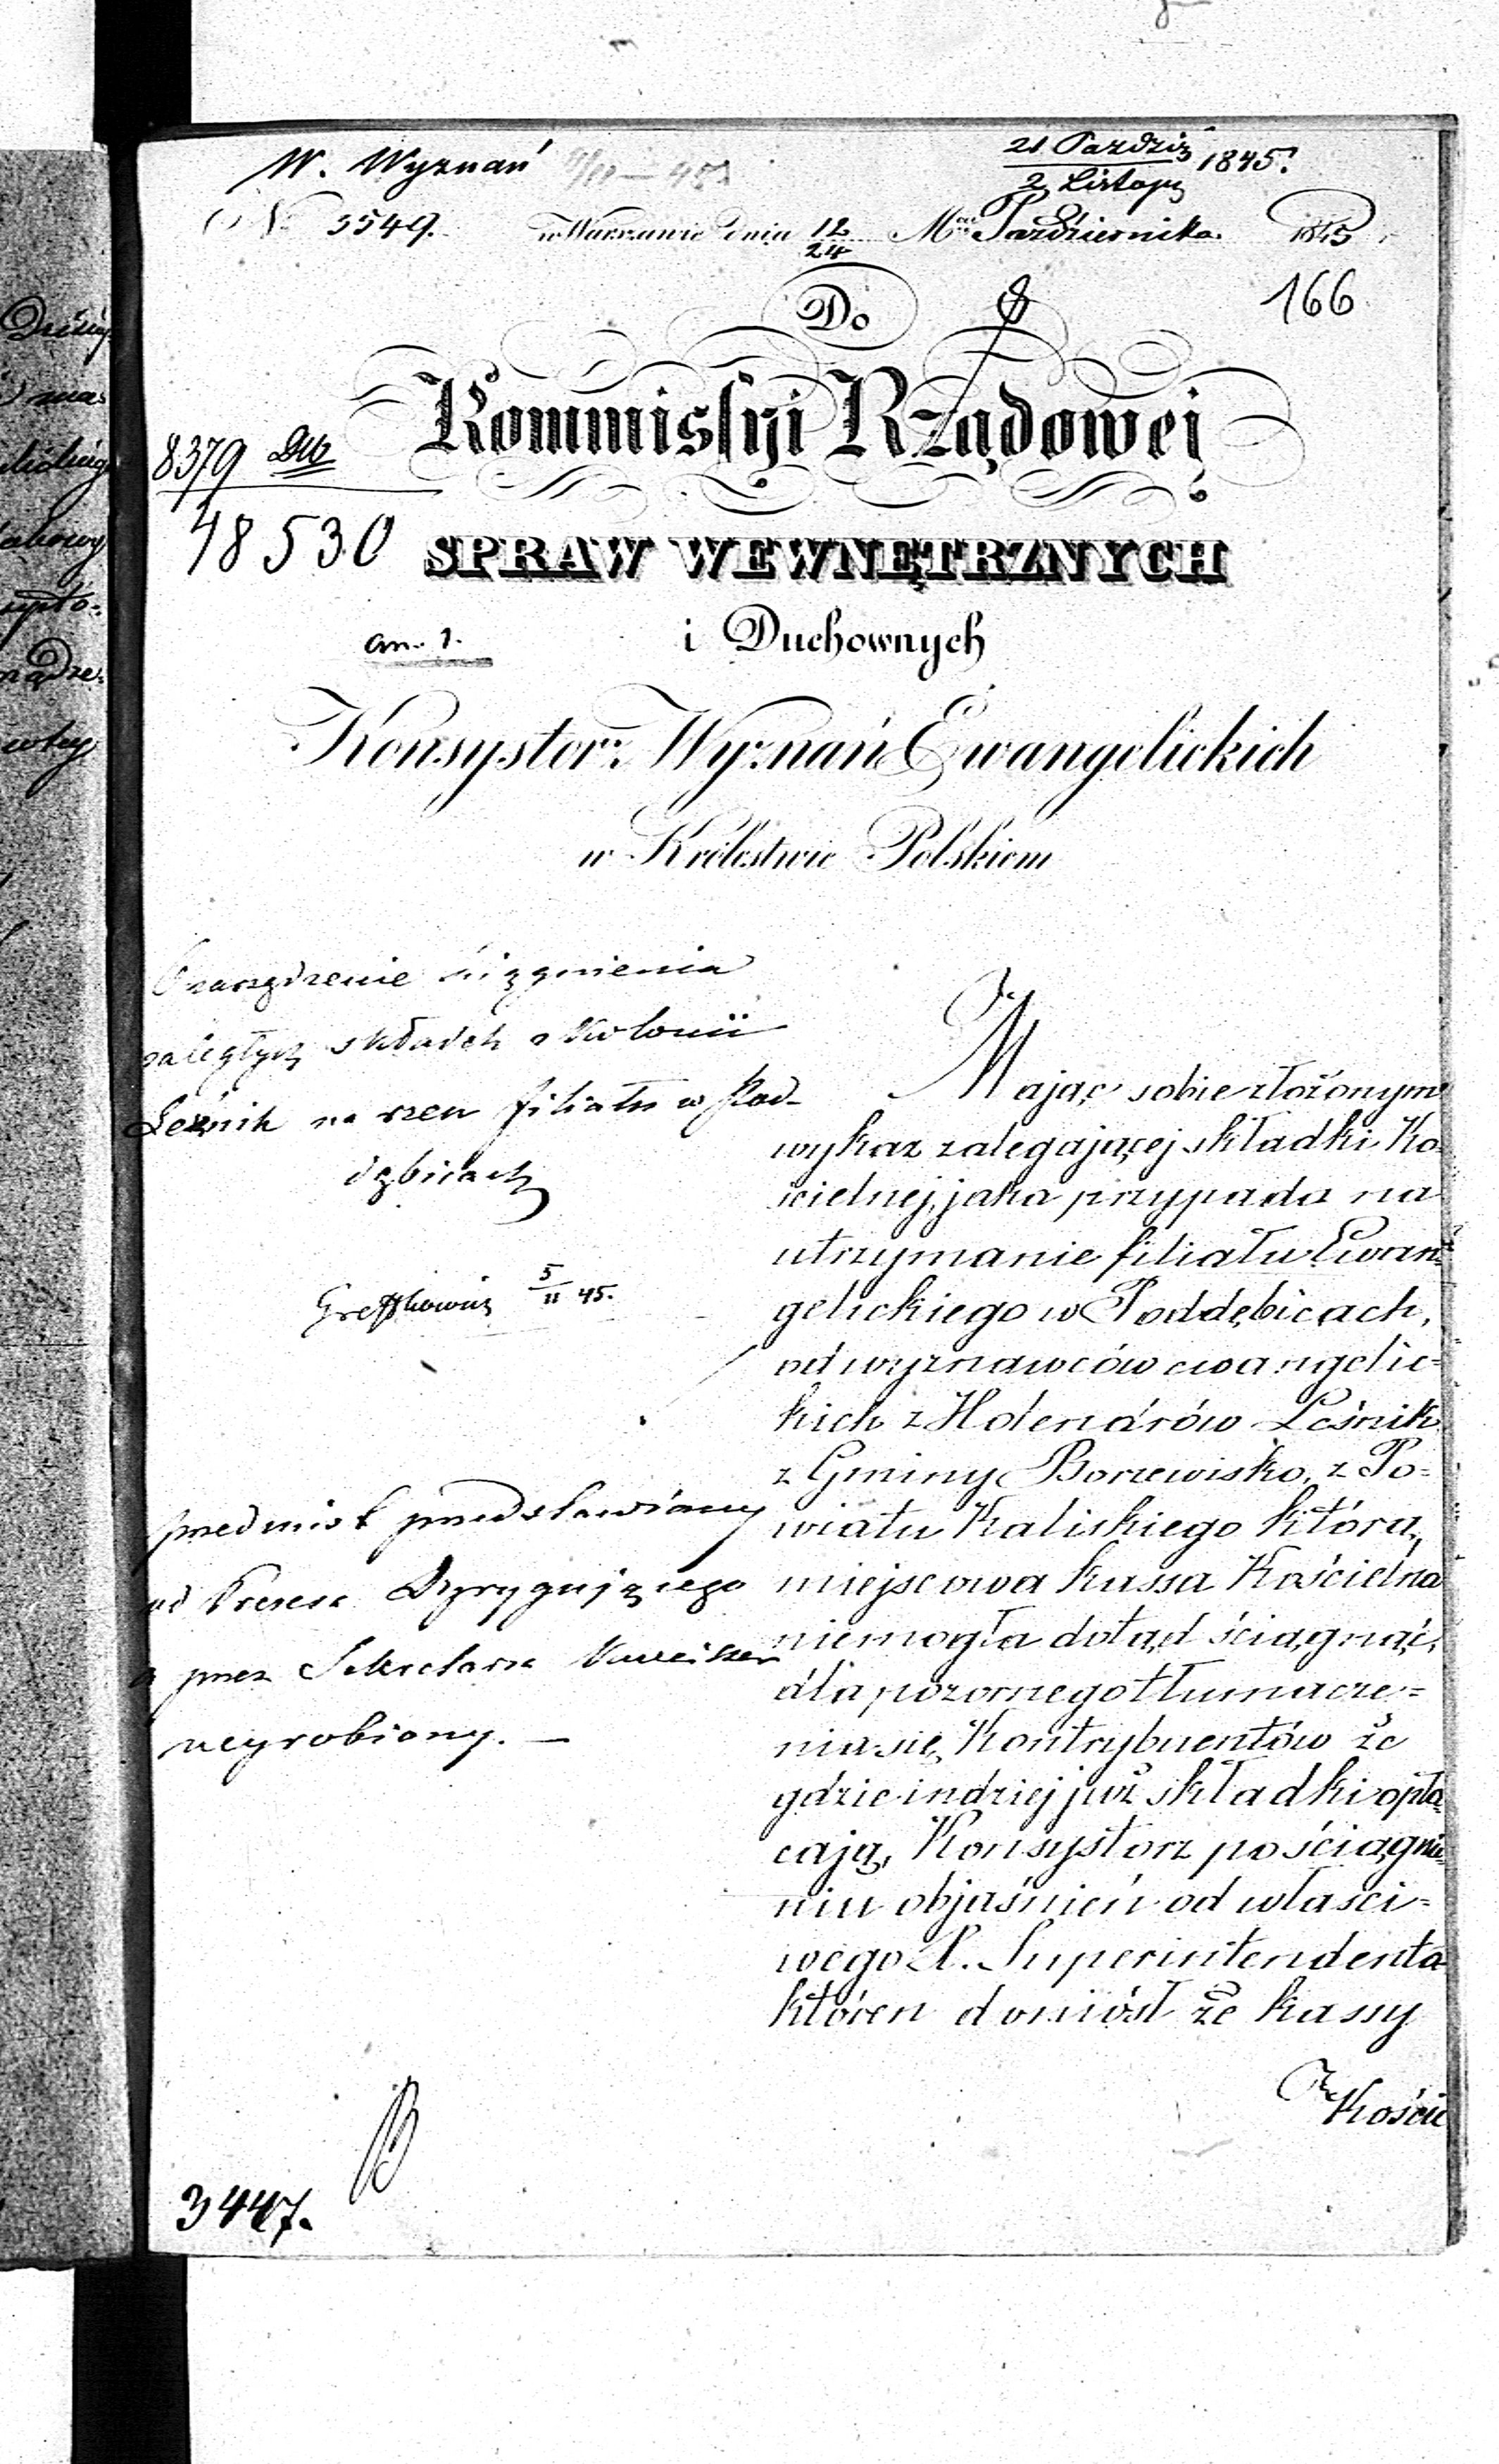 W. Wyznań
21 Paździer
2 Listopa 1845.
No 3549.
w Warszawie dnia 12/24 Mca Października 1845 r.
166
Do
Kommissyi Rządowej
8379
48530
SPRAW WEWNĘTRZNYCH
an. 1.
i Duchownych
Konsystorz Wyznań Ewangelickich
w Królestwie Polskiem
zarządzenie ściągnienia
zaległych składek z Kolonii
Leśnik na rzecz filiału w Pod-
dębicach
5/11 45.
przedmiot przedstawiony
od Prezesa Dyrygującego
a przez Sekretarza
wyrobiony. —
Mając sobie złożonym
wykaz zalegającej składki Ko-
ścielnej, jaka przypada na
utrzymanie filiału Ewan-
gelickiego w Poddębicach,
od wyznawców ewangelic-
kich z Holendrów Leśnik
z Gminy Borzewisko, z Po-
wiatu Kaliskiego którą,
miejscowa kassa Kościelna
niemogła dotąd ściągnąć,
dla pozornego tłumacze-
nia się Kontrybuentów że
gdzie indziej już składki opła-
cają, Konsystorz po ściągnie-
niu objaśnień od właści-
wego X. Superintendenta
któren doniósł że kassy
Kościel
3447.